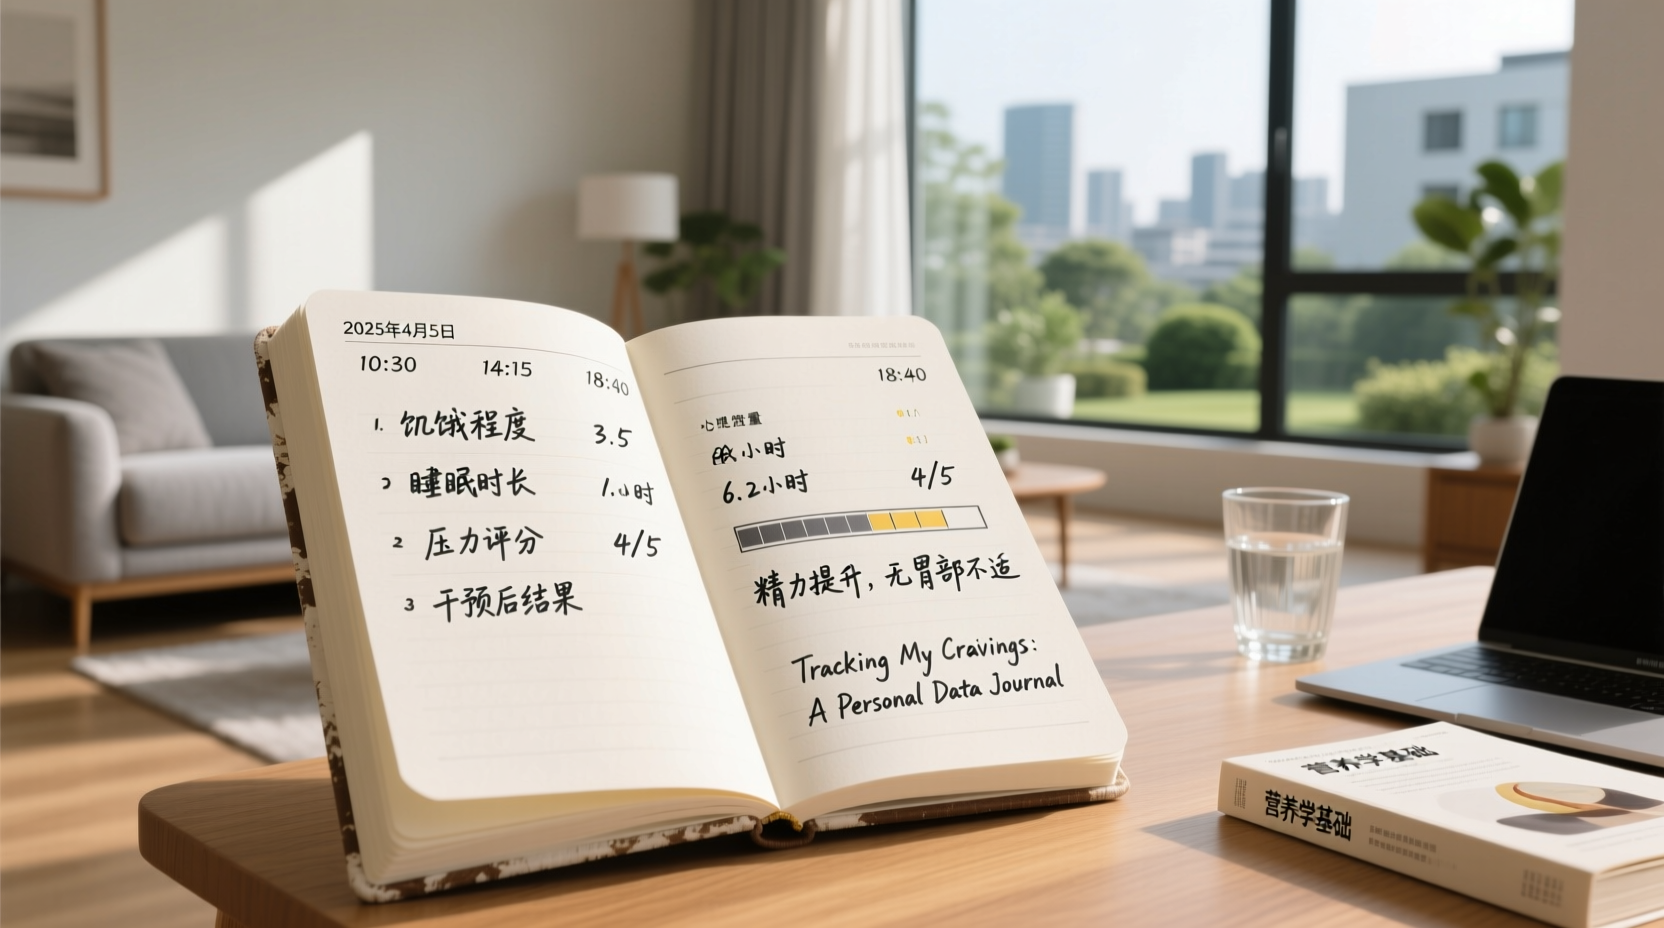 2025年4月5日
10:30 14:15 18:40
1. 饥饿程度 3.5
睡眠时长
2 压力评分 4/5
3 干预后结果
18:40
小时
6.2小时 4/5
精力提升，无胃部不适
Tracking My Cravings:
A Personal Data Journal
营养学基础
营养学基础